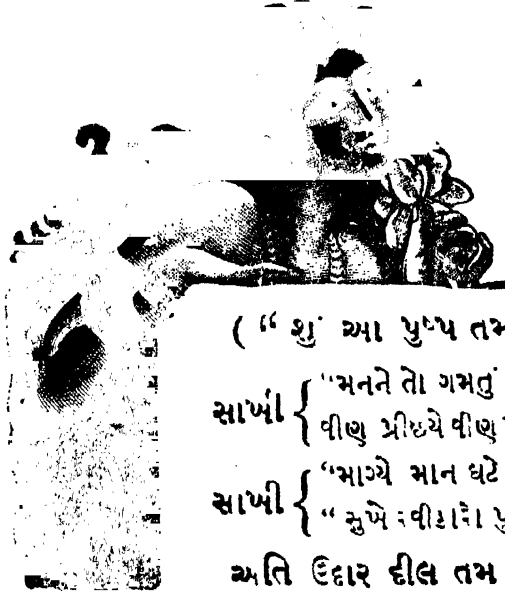 ( “ શું આ પુષ્પ તમ
સાખી { “મનને તો ગમતું
વીણ પ્રીછયે વીણ
સાખી { “માગ્યે માન ઘટે
“ સુખે સ્વીકારો પુ
અતિ ઉદાર દીલ તમ